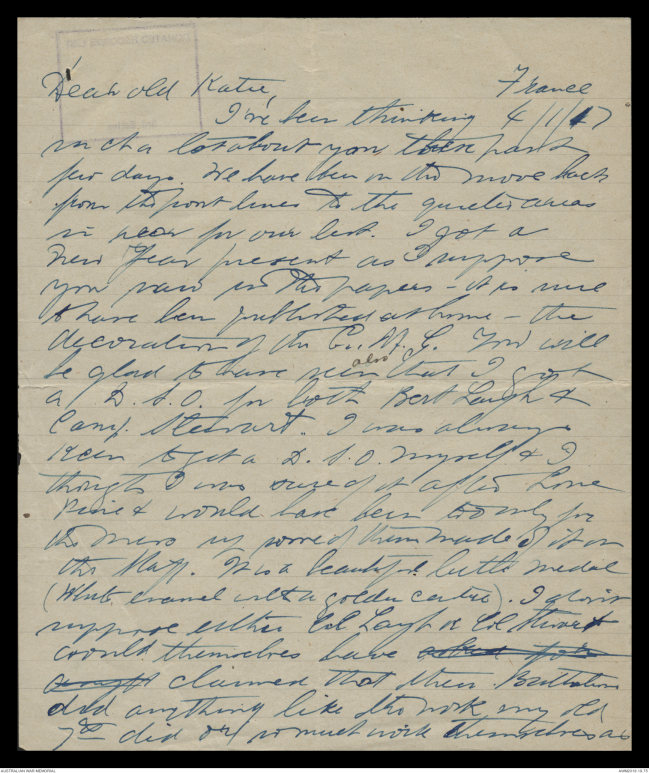 Dear old Katie, France
I've been thinking 4/1/17
such a lot about you these past
few days. We have been on the move back
from the front lines to the quieter areas
in rear for our rest. I got a
New Year present as I suppose
you saw in the papers - it is sure
to have been published at home - the
decoration of the C. M. G. You will
be glad to have seen also that I got
a D. S. O. for both Bert Layh &
Camp. Stewart. I was always
keen to get a D. S. O. myself & I
thought I was sure of it after Lone
Pine & would have been only for
the mess up some of them made of it on
the Staff. It is a beautiful little medal
(White enamel with a golden centre). I don't
suppose either Col Layh or Col Stewart
would themselves have asked for
claimed that their Battalions
did anything like the work my old
7th did or so much work themselves as
AUSTRALIAN WAR MEMORIAL